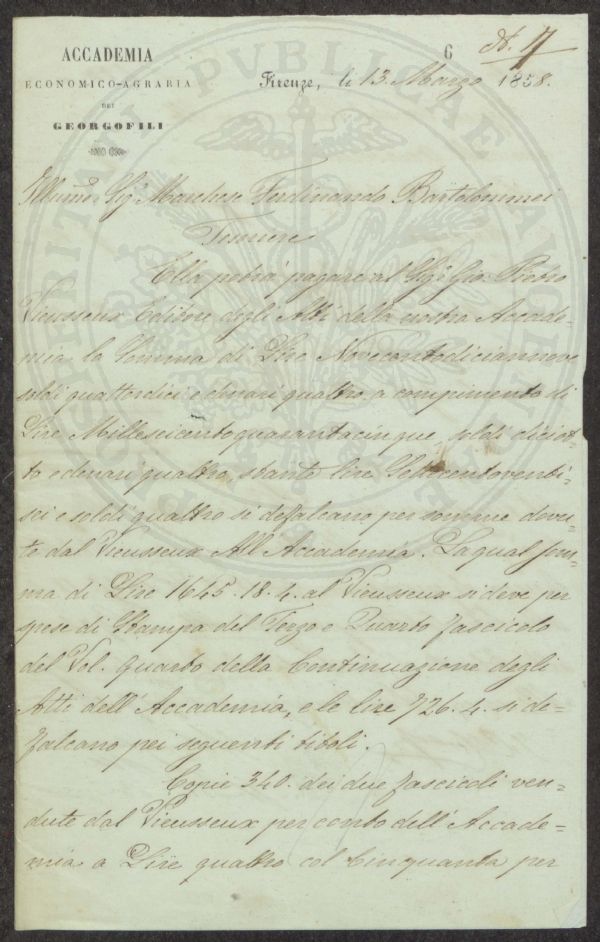 ACCADEMIA
ECONOMICO-AGRARIA
DEI
GEORGOFILI
6 N. 7
Firenze, li 13. Marzo 1858.
Illumo. Sigr. Marchese Ferdinando Bartolommei
Tesoriere
Ella potrà pagare al Sigr. Gio. Pietro
Vieusseux Editore degli Atti della nostra Accade=
mia la somma di Lire Novecentodiciannove
soldi quattordici e denari quattro, a compimento di
Lire Milleseicentoquarantacinque, soldi diciot=
to e denari quattro, stante lire Settecentoventi=
sei e soldi quattro si defalcano per somme dovu=
te dal Vieusseux All'Accademia. La qual som=
ma di Lire 1645.18.4. al Vieusseux si deve per
spese di Stampa del Terzo e Quarto fascicolo
del Vol. Quarto della Continuazione degli
Atti dell'Accademia, e le lire 726.4. si de=
falcano pei seguenti titoli.
Copie 340. dei due fascicoli ven=
dute dal Vieusseux per conto dell'Accade=
mia a Lire quattro col Cinquanta per